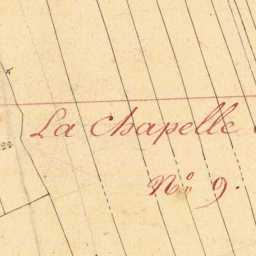 La Chapelle
N.º 9.